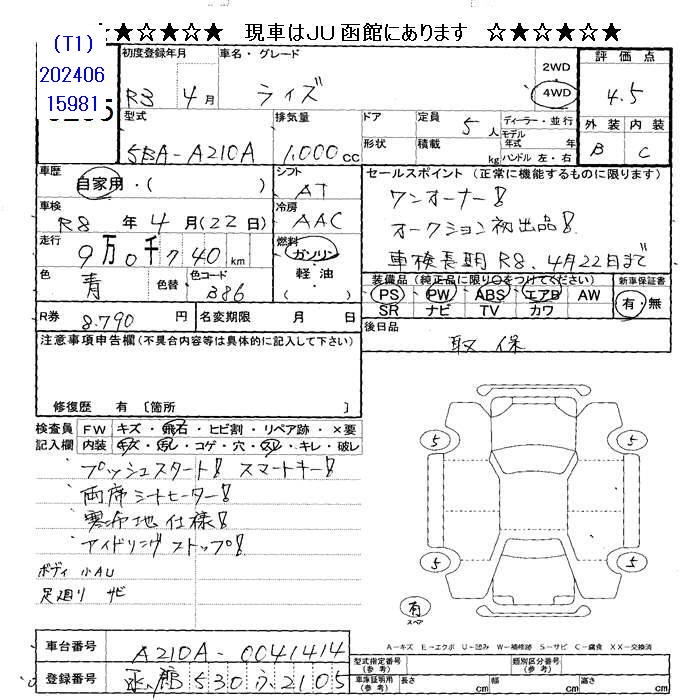 ☆★☆★☆ 現車はJU函館にあります ☆★☆★☆★
(T1)
202406
15981
初度登録年月 車名・グレード 評価点
R3 4月 ライズ 2WD 4WD 4.5
型式 排気量 ドア 定員 5人 ディーラー・並行 外装 内装
モデル年式 年
5BA-A210A 1,000cc 形状 積載 kg ハンドル 左・右 B C
車歴 シフト セールスポイント (正常に機能するものに限ります)
自家用・( ) AT ワンオーナー!
車検 冷房 オークション初出品!
R8年4月(22日) AAC
走行 燃料 車検長期R8、4月22日まで
9万0千740km ガソリン
色 色替 色コード 軽油 装備品(純正品に限り○をつけてください) 新車保証書
青 B86 ( ) PS PW ABS エアB AW 有・無
SR ナビ TV カワ
R券 8,790円 名変期限 月 日 後日品
取 保
注意事項申告欄(不具合内容等は具体的に記入して下さい)
修復歴 有 [箇所 ]
検査員 FW キズ・飛石・ヒビ割・リペア跡・×要
記入欄 内装 キズ・汚レ・コゲ・穴・スレ・キレ・破レ
プッシュスタート! スマートキー!
両席シートヒーター!
寒冷地仕様!
アイドリングストップ!
ボディ 小AU
足廻り サビ
5 5
5 5
有
スペア
A-キズ E-エクボ U-凹み W-補修跡 S-サビ C-腐食 XX-交換済
車台番号 A210A-0041414
型式指定番号(参考) 類別区分番号(参考)
登録番号 函館530 2105
車庫証明用(参考) 長さ cm 幅 cm 高さ cm